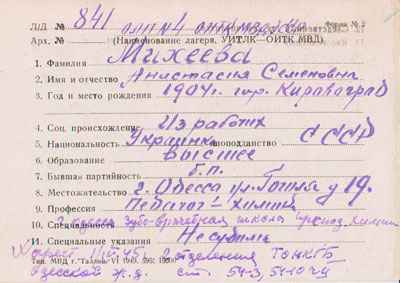 Л/Д № 841 Форма № 2
Арх. № (Наименование лагеря, УИТЛК—ОИТК МВД)
1. Фамилия Михеева
2. Имя и отчество Анастасия Семеновна
3. Год и место рождения 1904 г. гор. Кировоград
4. Соц. происхождение Из рабочих
5. Национальность Украинка подданство СССР
6. Образование высшее
7. Бывшая партийность б.п.
8. Местожительство г. Одесса ул. д 19.
9. Профессия Педагог - Химия
10. Специальность 2 Одесса Зубо-врачебная школа Химии
11. Специальные указания Не судима
Арест 45 г. 2 отделения ТОНКГБ
Одесской ж.д. ст. 54-3, 54-10 ч 2